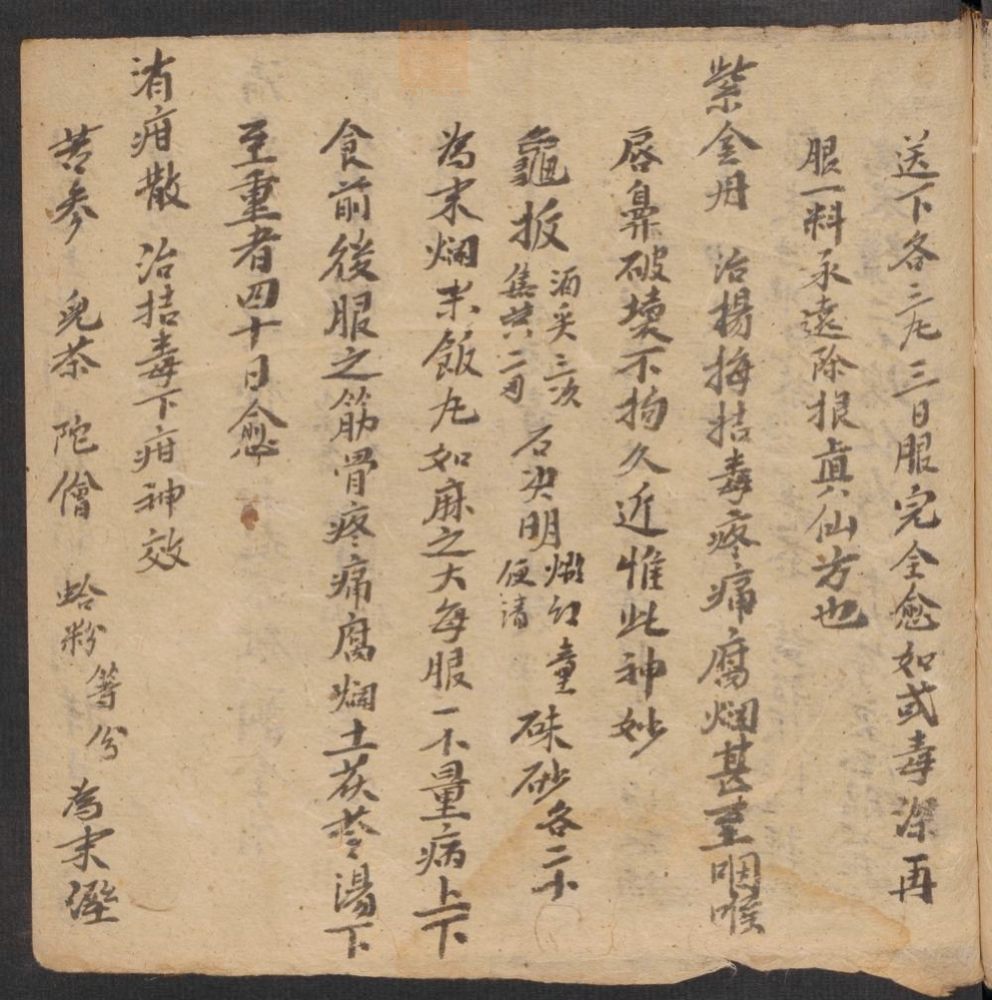 送下各三九三日服完全愈如或毒深再
服一料永遠除根真仙方也
紫金丹 治楊梅拮毒疼痛腐爛甚至咽喉
唇鼻破壞不拘久近惟此神妙
龜板 酒炙三次 焦共二 石決明 煅红童便清 硃砂各二十
為末爛米飯九如麻之大每服一 量病上下
食前後服之筋骨疼痛腐爛土茯苓湯下
至重者四十日愈
消疳散 治拮毒下疳神效
苦參 兒茶 陀僧 蛤粉等分 為末